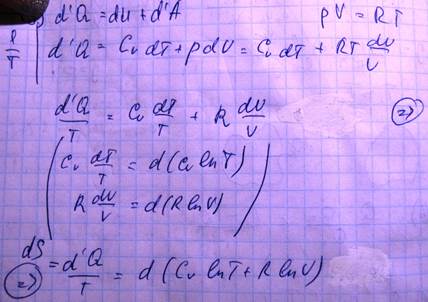 d'Q = du + d'A pV = RT
1/T | d'Q = Cv dT + pdV = Cv dT + RT dV/V
d'Q/T = Cv dT/T + R dV/V (2)
( Cv dT/T = d(Cv lnT)
R dV/V = d(R lnV) )
dS = d'Q/T = d(Cv lnT + R lnV)
(2)